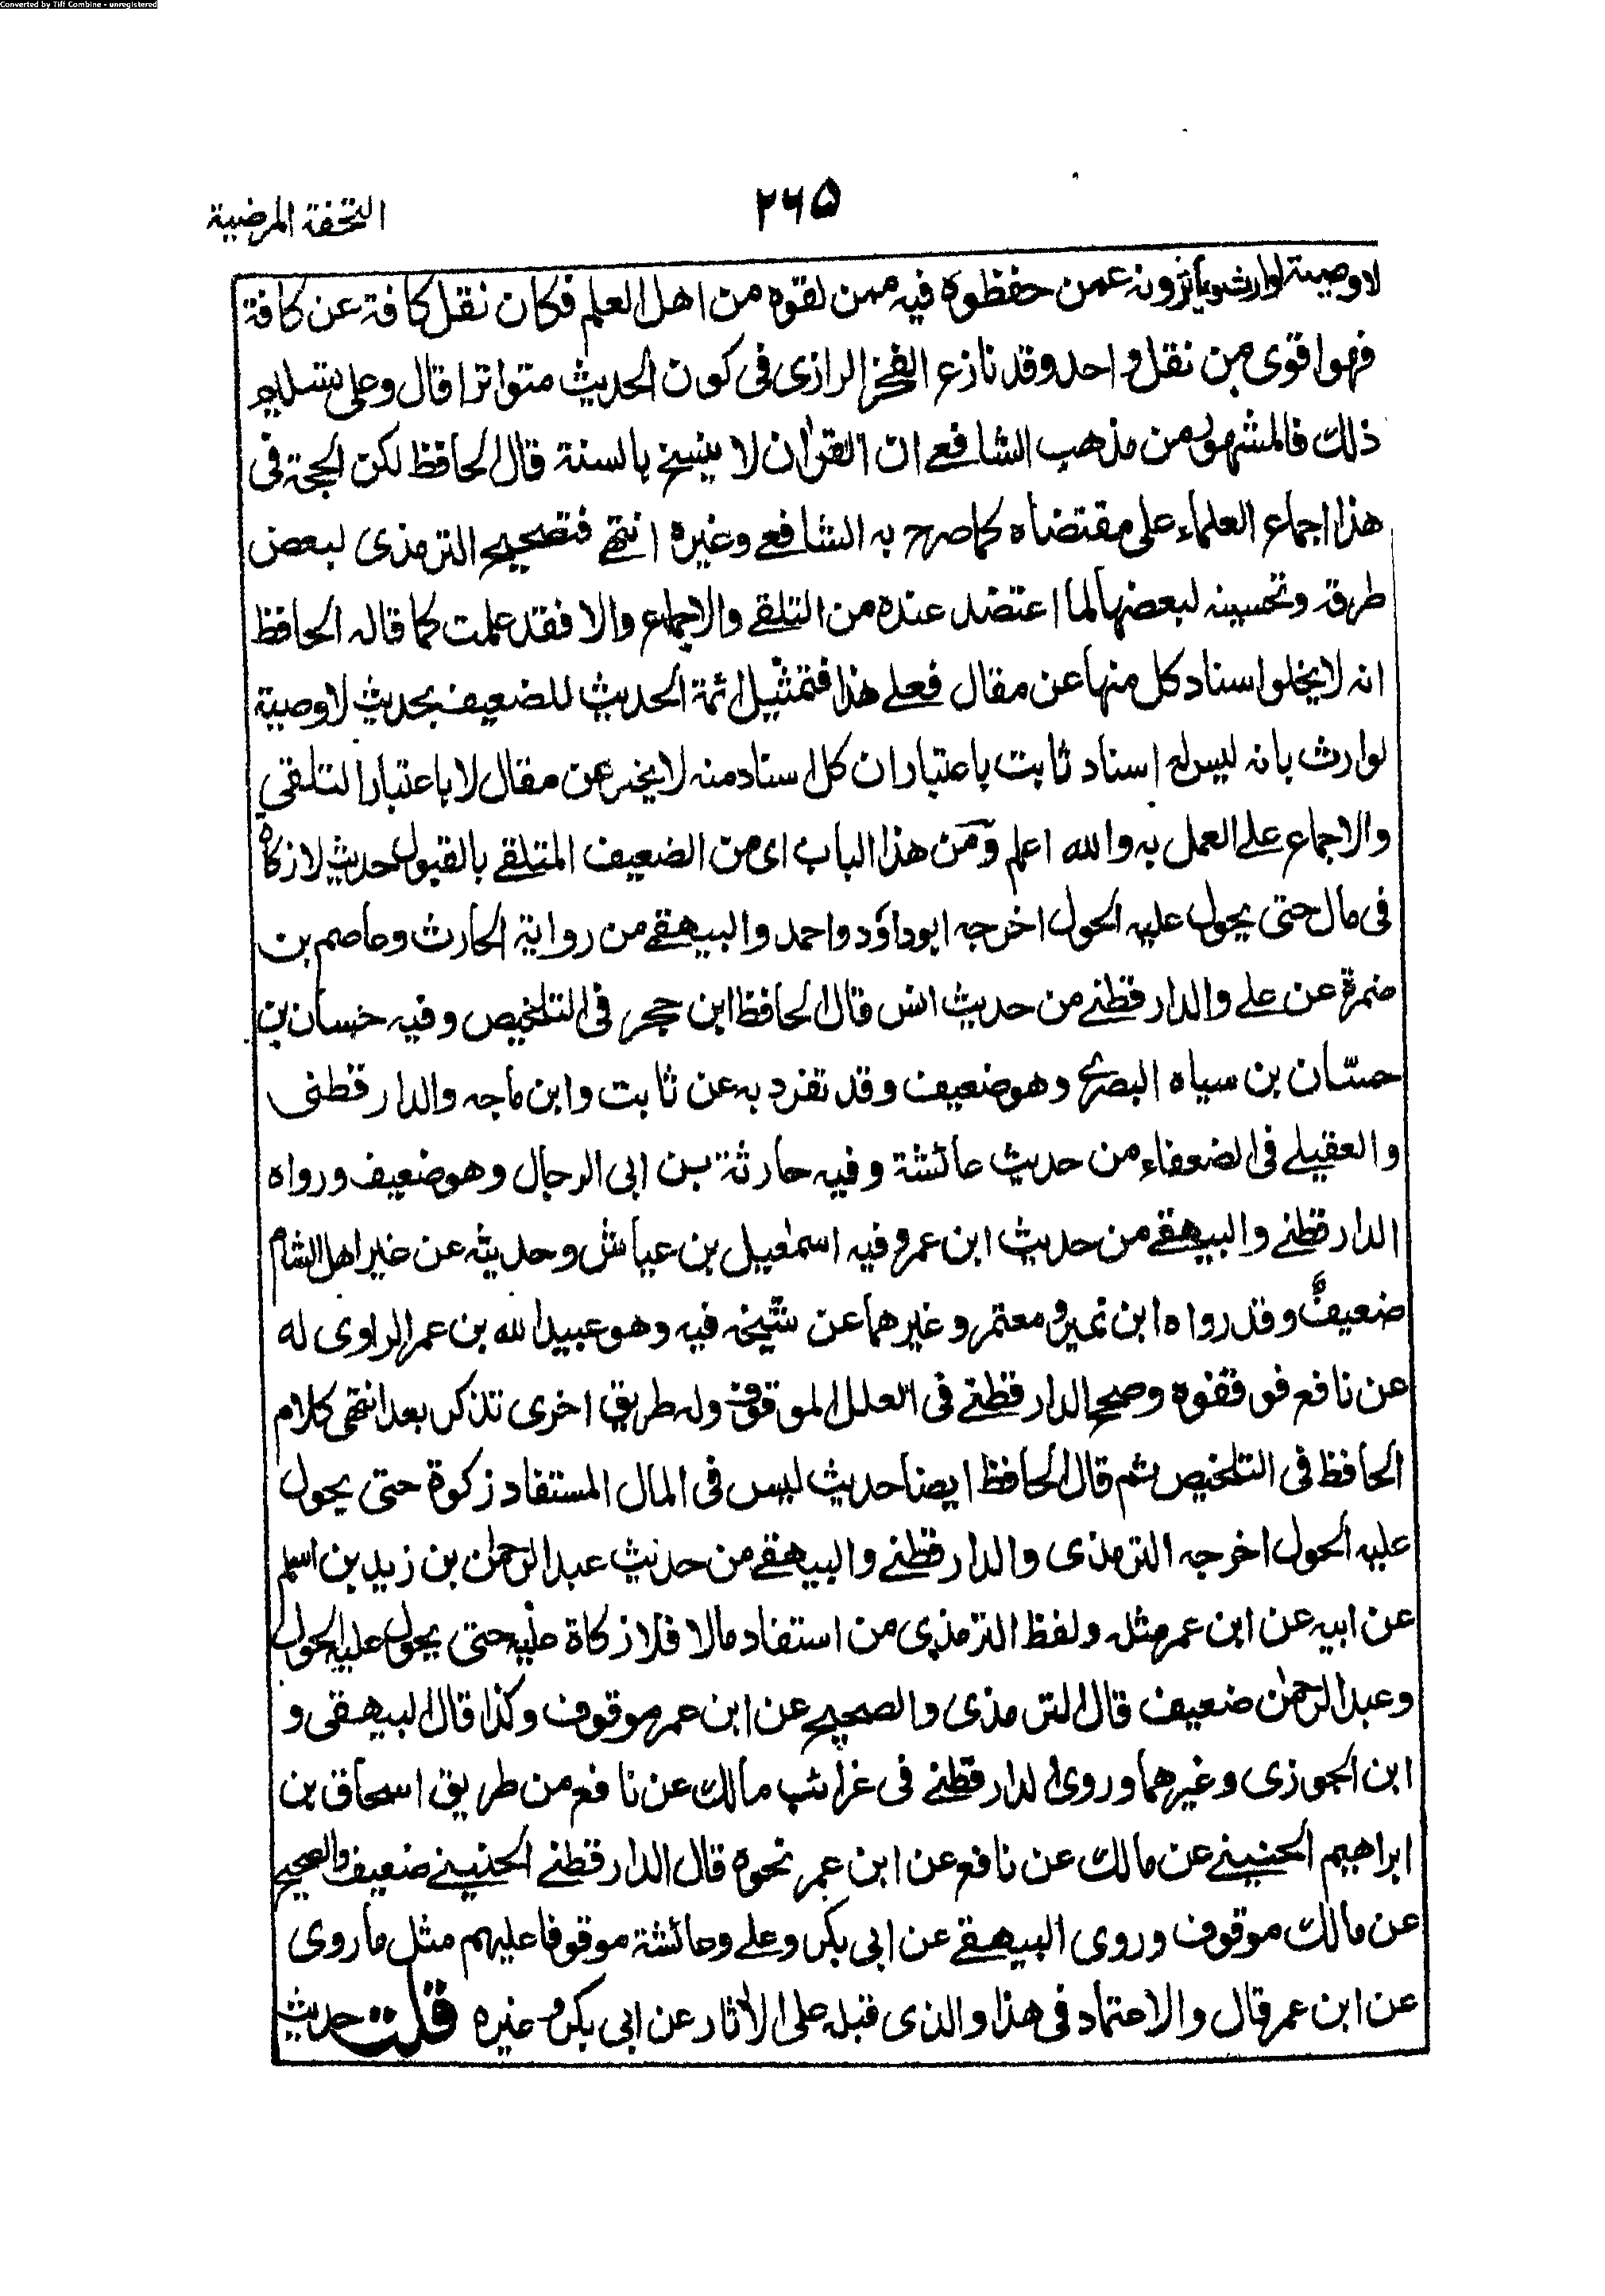 Converted by Tiff Combine - unregistered
التحفة المرضية
٢٦٥
لاوصية لوارث ويأثرونه عمن حفظوه فيه ممن لقوه من اهل العلم فكان نقل كافة عن كافة
فهو اقوى من نقل واحد وقد نازع الفخر الرازى فى كون الحديث متواترا قال وعلى تسليم
ذلك فالمشهور من مذهب الشافعے ان القرأن لا ينسخ بالسنة قال الحافظ لكن الحجة فى
هذا اجماع العلماء على مقتضاه كما صرح به الشافعے وغيره انتهے فتصحيح الترمذى لبعض
طرقه وتحسينه لبعضها لما اعتضد عنده من التلقے والاجماع والا فقد علمت كما قاله الحافظ
انه لا يخلو اسناد كل منها عن مقال فعلے هذا فتمثيل ائمة الحديث للضعيف بحديث لاوصية
لوارث بانه ليس له اسناد ثابت باعتبار ان كل اسناد منه لا يخبر عن مقال لا باعتبار التلقي
والاجماع علے العمل به والله اعلم ومن هذا الباب اى من الضعيف المتلقے بالقبول حديث لازكاة
فى مال حتى يحول عليه الحول اخرجه ابوداؤد واحمد والبيهقے من رواية الحارث وعاصم بن
ضمرة عن علے والدارقطنے من حديث انس قال الحافظ ابن حجر فى التلخيص وفيه حسان بن
حسّان بن سياه البصرى وهو ضعيف وقد تفرد به عن ثابت وابن ماجه والدارقطنى
والعقيلے فى الضعفاء من حديث عائشة وفيه حارثة بن ابى الرجال وهو ضعيف ورواه
الدارقطنے والبيهقے من حديث ابن عمر وفيه اسمٰعيل بن عياش وحديثه عن غير اهل الشام
ضعيفٌ وقد رواه ابن نمير ومعتمر وغيرهما عن شيخه فيه وهو عبيد الله بن عمر الراوى له
عن نافع فوقفوه وصحح الدارقطنے فى العلل الموقوف وله طريق اخرى تذكر بعد انتهى كلام
الحافظ فى التلخيص ثم قال الحافظ ايضا حديث ليس فى المال المستفاد زكوة حتى يحول
عليه الحول اخرجه الترمذى والدارقطنے والبيهقے من حديث عبد الرحمٰن بن زيد بن اسلم
عن ابيه عن ابن عمر مثله ولفظ الترمذى من استفاد مالا فلا زكاة عليه حتى يحول عليه الحول
وعبد الرحمٰن ضعيف قال الترمذى والصحيح عن ابن عمر موقوف وكذا قال البيهقى و
ابن الجوزى وغيرهما وروى الدارقطنے فى غرائب مالك عن نافع من طريق اسحاق بن
ابراهيم الحنينے عن مالك عن نافع عن ابن عمر نحوه قال الدارقطنے الحنينے ضعيف والصحيح
عن مالك موقوف وروى البيهقے عن ابى بكر وعلے وعائشة موقوفا عليهم مثل ما روى
عن ابن عمر قال والاعتماد فى هذا والذى قبله على الأثار عن ابى بكر وغيره قلت حديث